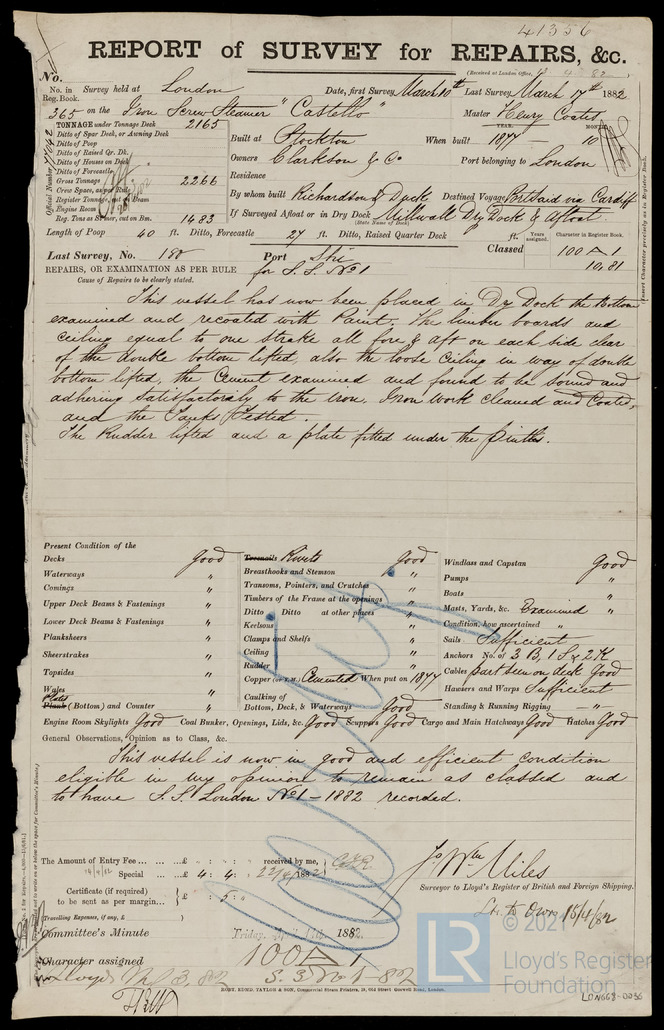 41356
REPORT of SURVEY for REPAIRS, &c.
(Received at London Office, 13 4 82)
No.
No. in Reg. Book. Survey held at London Date, first Survey March 10th Last Survey March 17th 1882
365 on the Iron Screw Steamer "Castello" Master Henry Coates
TONNAGE under Tonnage Deck 2165
Ditto of Spar Deck, or Awning Deck
Ditto of Poop
Ditto of Raised Qr. Dk.
Ditto of Houses on Deck
Ditto of Forecastle
Gross Tonnage 2266
Crew Space, as per Rule
Register Tonnage, cut on Beam
Engine Room
Reg. Tons as Steamer, cut on Bm. 1483
Official Number
Built at Stockton When built YEAR. 1877 MONTH. 10
Owners Clarkson & Co Port belonging to London
Residence
By whom built Richardson & Duck Destined Voyage Port Said via Cardiff
If Surveyed Afloat or in Dry Dock Millwall Dry Dock & Afloat
(State Name of Dock)
Length of Poop 40 ft. Ditto, Forecastle 27 ft. Ditto, Raised Quarter Deck ft.
Years assigned. Character in Register Book.
Last Survey, No. 180 Port Shi Classed 100 A 1
10,81
REPAIRS, OR EXAMINATION AS PER RULE for S.S. No 1
Cause of Repairs to be clearly stated.
This vessel has now been placed in Dry Dock the Bottom
examined and recoated with Paint. The limber boards and
Ceiling equal to one strake all fore & aft on each side clear
of the double bottom lifted, also the loose Ceiling in way of double
bottom lifted, the Cement examined and found to be sound and
adhering satisfactorily to the iron. Iron work cleaned and Coated,
and the Tanks tested.
The Rudder lifted and a plate fitted under the pintles.
Present Condition of the
Decks Good
Waterways "
Comings "
Upper Deck Beams & Fastenings "
Lower Deck Beams & Fastenings "
Planksheers "
Sheerstrakes "
Topsides "
Wales "
Plates
Plank (Bottom) and Counter "
Treenails Rivets Good
Breasthooks and Stemson "
Transoms, Pointers, and Crutches "
Timbers of the Frame at the openings "
Ditto Ditto at other places "
Keelsons "
Clamps and Shelfs "
Ceiling "
Rudder "
Copper (or Y.M.) Cemented When put on 1877
Caulking of
Bottom, Deck, & Waterways Good
Windlass and Capstan Good
Pumps "
Boats "
Masts, Yards, &c. Examined "
Condition, how ascertained "
Sails Sufficient
Anchors No. of 3 B, 1 S & 2 K
Cables part seen on deck Good
Hawsers and Warps Sufficient
Standing & Running Rigging "
Engine Room Skylights Good Coal Bunker, Openings, Lids, &c. Good Scuppers Good Cargo and Main Hatchways Good Hatches Good
General Observations, Opinion as to Class, &c.
This vessel is now in good and efficient condition
eligible in my opinion to remain as classed and
to have S.S. London No 1 - 1882 recorded.
The Amount of Entry Fee £ : : received by me,
Special £ 4 : 4 : 22/4/1882
Certificate (if required) to be sent as per margin £ : 5 :
Travelling Expenses, if any, £
Jo Wm Miles
Surveyor to Lloyd's Register of British and Foreign Shipping.
Committee's Minute Friday, April 14th, 1882.
Character assigned 100 A 1
S.S No 1-82
© 2021
LR
Lloyd's Register
Foundation
ROBT. EDMD. TAYLOR & SON, Commercial Steam Printers, 19, Old Street Goswell Road, London.
LDN668-0036